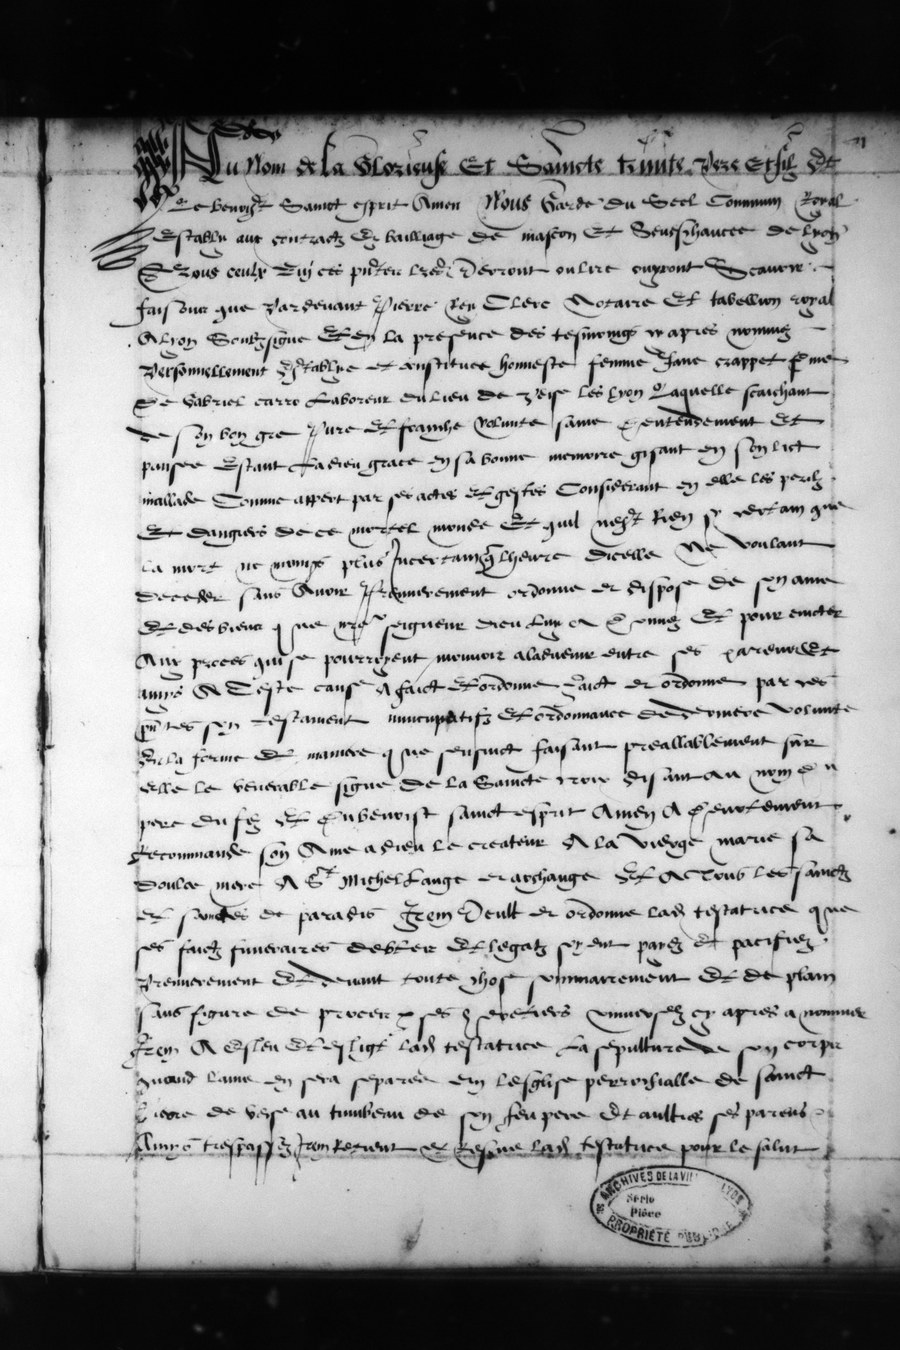 Au Nom de la Glorieuse Et Saincte trinite pere Et filz Et
Le benoist Sainct esprit Amen Nous Garde du Seel Commun Royal
Estably aux contractz Es bailliage de mascon Et Seneschaucee de lyon
A Tous ceulx Qui ces pntes lres Verront ou lire ouyront Scavoir
faisons que Pardevant Pierre Clerc Notaire Et tabellion royal
A lyon Soubzsigne Et En la presence des tesmoings cy apres nommez
Personnellement Establye et constituee honneste femme Jane crappet feme
De Gabriel carro Laboreur du lieu de Veise les lyon Laquelle scaichant
de son bon gre Pure Et franche Volunte saine d'entendement Et
pansee Estant La dieu grace en sa bonne memoire gisant en son lict
mallade Comme appert par ses actes Et gestes Considerant en elle les perilz
Et dangiers de ce mortel monde Et quil nest Rien sy certain que
La mort ne moings plus Incertain que lheure dicelle Ne Voulant
deceder sans Avoir Premierement ordonne et dispose de son ame
Et des biens que nre seigneur dieu Luy a donnez Et pour eviter
Aux proces qui se pourroyent mouvoir aladvenir entre ses parens Et
amys A Ceste cause A faict Et ordonne faict et ordonne par ces
pntes son testament nuncupatif Et ordonnance de derniere volunte
En la forme Et maniere que sensuict faisant preallablement sur
elle le venerable signe de la Saincte croix disant au nom du
pere du filz Et du benoist sainct esprit Amen A devotement
Recommande son Ame a dieu le createur A la Vierge marie sa
doulce mere A St Michel Lange et archange Et A Tous les sainctz
et sainctes de paradis Item Veult et ordonne lad testatrice que
ses faictz funeraires debtes Et legatz soyent payez Et pacifiez
Premierement Et devant toute chose sommairement Et de plain
sans figure de proces par ses heretiers universelz cy apres a nommer
Item A Esleu Et Eslict lad testatrice La sepulture de son corps
quand lame en sera separee en lesglise perrochialle de sainct
Pierre de Veise au tumbeau de son feu pere Et aultres ses parens
Amys trespassez Item Requiert et lad testatrice pour le salut
ARCHIVES DE LA VILLE LYON
Série
Pièce
PROPRIÉTÉ PUBLIQUE